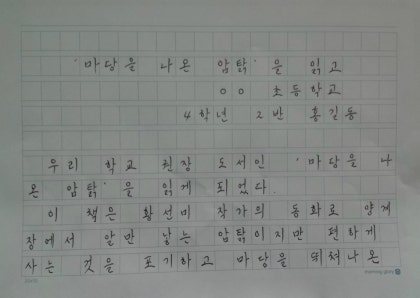 '마당을 나온 암탉'을 읽고
○○ 초등학교
4학년 2반 홍길동
우리 학교 권장 도서인 '마당을 나
온 암탉'을 읽게 되었다.
이 책은 황선미 작가의 동화로 양계
장에서 알만 낳는 암탉이지만 편하게
사는 것을 포기하고 마당을 뛰쳐나온